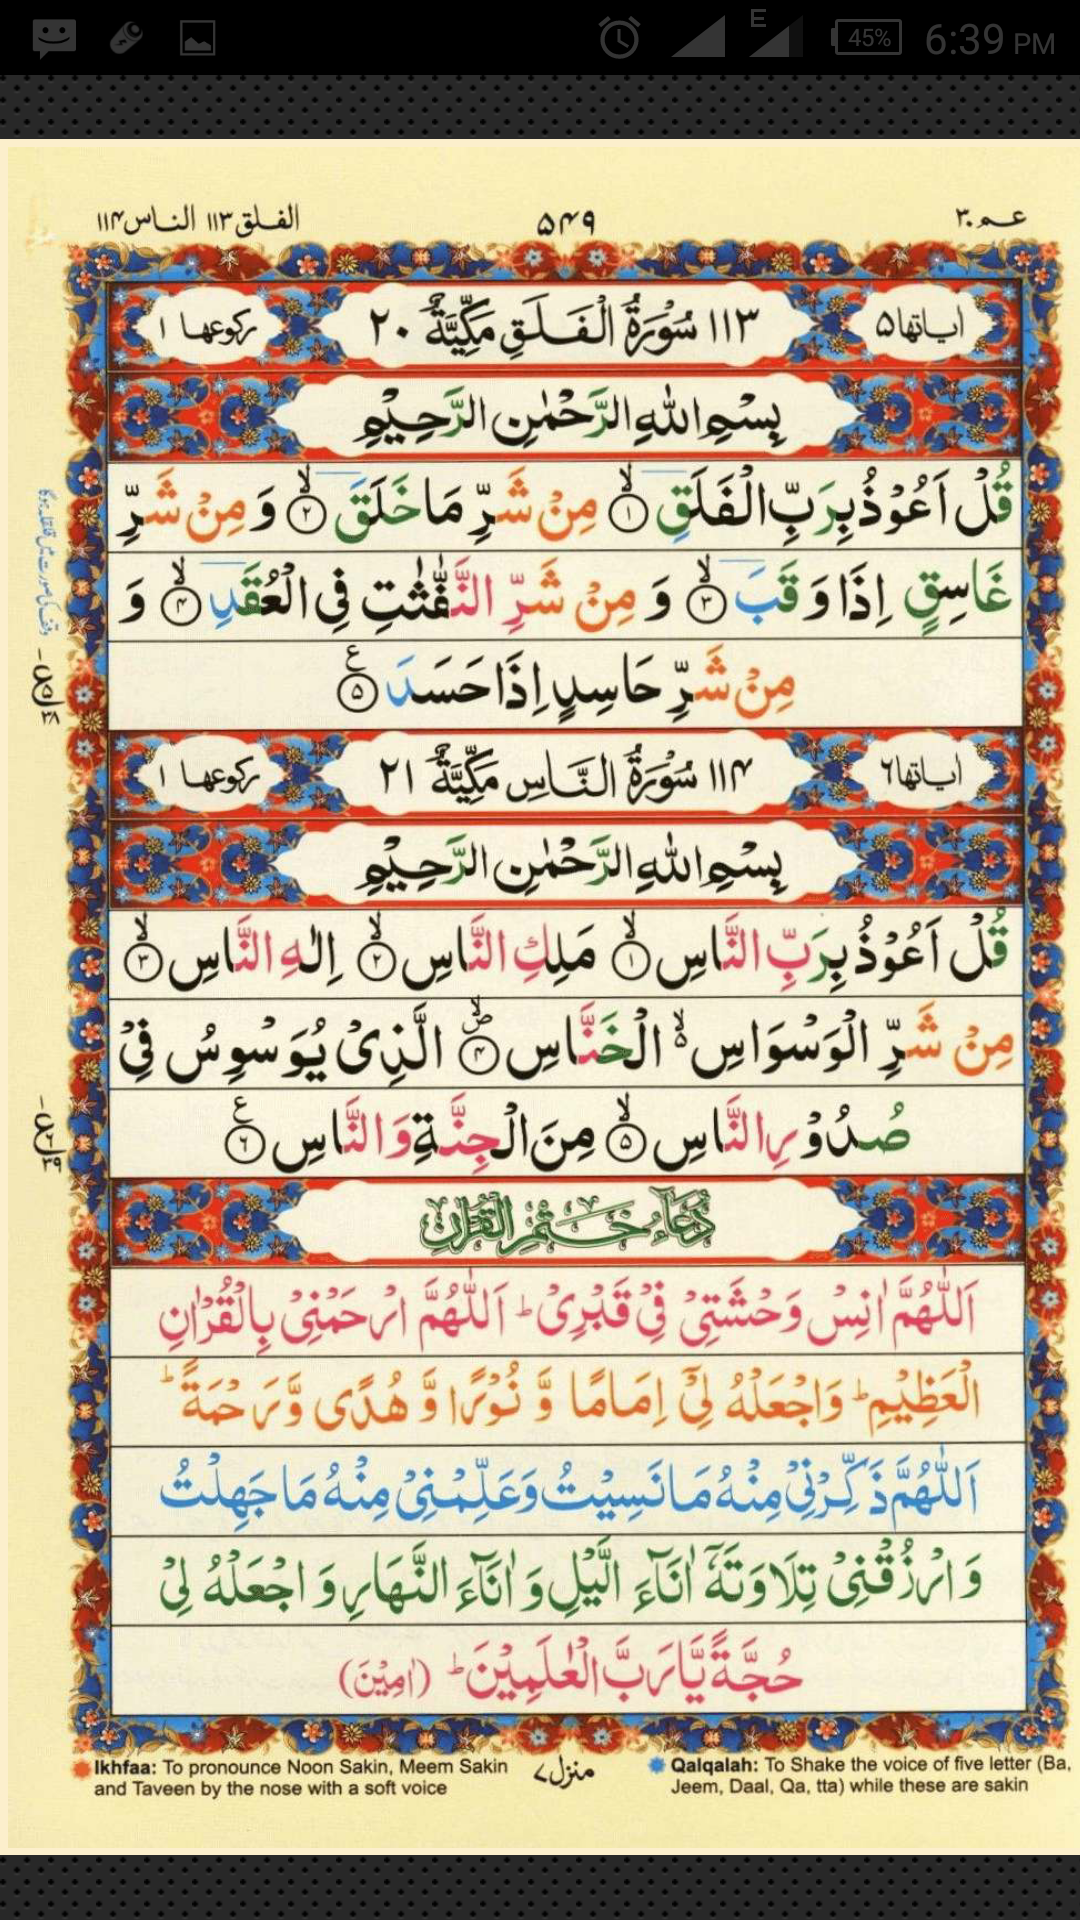 45% 6:39 PM
E
عـم ٣٠ ٥٤٩ الفلق ١١٣ الناس ١١٤
اٰياتها ٥ ١١٣ سُوْرَةُ الْفَلَقِ مَكِّيَّةٌ ٢٠ ركوعها ١
بِسْمِ اللّٰهِ الرَّحْمٰنِ الرَّحِيْمِ
قُلْ اَعُوْذُ بِرَبِّ الْفَلَقِ ۙ﴿١﴾ مِنْ شَرِّ مَا خَلَقَ ۙ﴿٢﴾ وَ مِنْ شَرِّ
غَاسِقٍ اِذَا وَقَبَ ۙ﴿٣﴾ وَ مِنْ شَرِّ النَّفّٰثٰتِ فِى الْعُقَدِ ۙ﴿٤﴾ وَ
مِنْ شَرِّ حَاسِدٍ اِذَا حَسَدَ ﴿٥﴾ ع
اٰياتها ٦ ١١٤ سُوْرَةُ النَّاسِ مَكِّيَّةٌ ٢١ ركوعها ١
بِسْمِ اللّٰهِ الرَّحْمٰنِ الرَّحِيْمِ
قُلْ اَعُوْذُ بِرَبِّ النَّاسِ ۙ﴿١﴾ مَلِكِ النَّاسِ ۙ﴿٢﴾ اِلٰهِ النَّاسِ ۙ﴿٣﴾
مِنْ شَرِّ الْوَسْوَاسِ ۙ الْخَنَّاسِ ﴿٤﴾ الَّذِىْ يُوَسْوِسُ فِىْ
صُدُوْرِ النَّاسِ ۙ﴿٥﴾ مِنَ الْجِنَّةِ وَ النَّاسِ ﴿٦﴾ ع
دُعَاءُ خَتْمِ الْقُرْاٰنِ
اَللّٰهُمَّ اٰنِسْ وَحْشَتِىْ فِىْ قَبْرِىْ ؕ اَللّٰهُمَّ ارْحَمْنِىْ بِالْقُرْاٰنِ
الْعَظِيْمِ ؕ وَاجْعَلْهُ لِىْٓ اِمَامًا وَّ نُوْرًا وَّ هُدًى وَّرَحْمَةً ؕ
اَللّٰهُمَّ ذَكِّرْنِىْ مِنْهُ مَا نَسِيْتُ وَعَلِّمْنِىْ مِنْهُ مَا جَهِلْتُ
وَ ارْزُقْنِىْ تِلَاوَتَهٗٓ اٰنَآءَ الَّيْلِ وَ اٰنَآءَ النَّهَارِ وَ اجْعَلْهُ لِىْ
حُجَّةً يَّا رَبَّ الْعٰلَمِيْنَ ؕ (اٰمِيْنَ)
Ikhfaa: To pronounce Noon Sakin, Meem Sakin
and Taveen by the nose with a soft voice
منزل ٧
Qalqalah: To Shake the voice of five letter (Ba,
Jeem, Daal, Qa, tta) while these are sakin